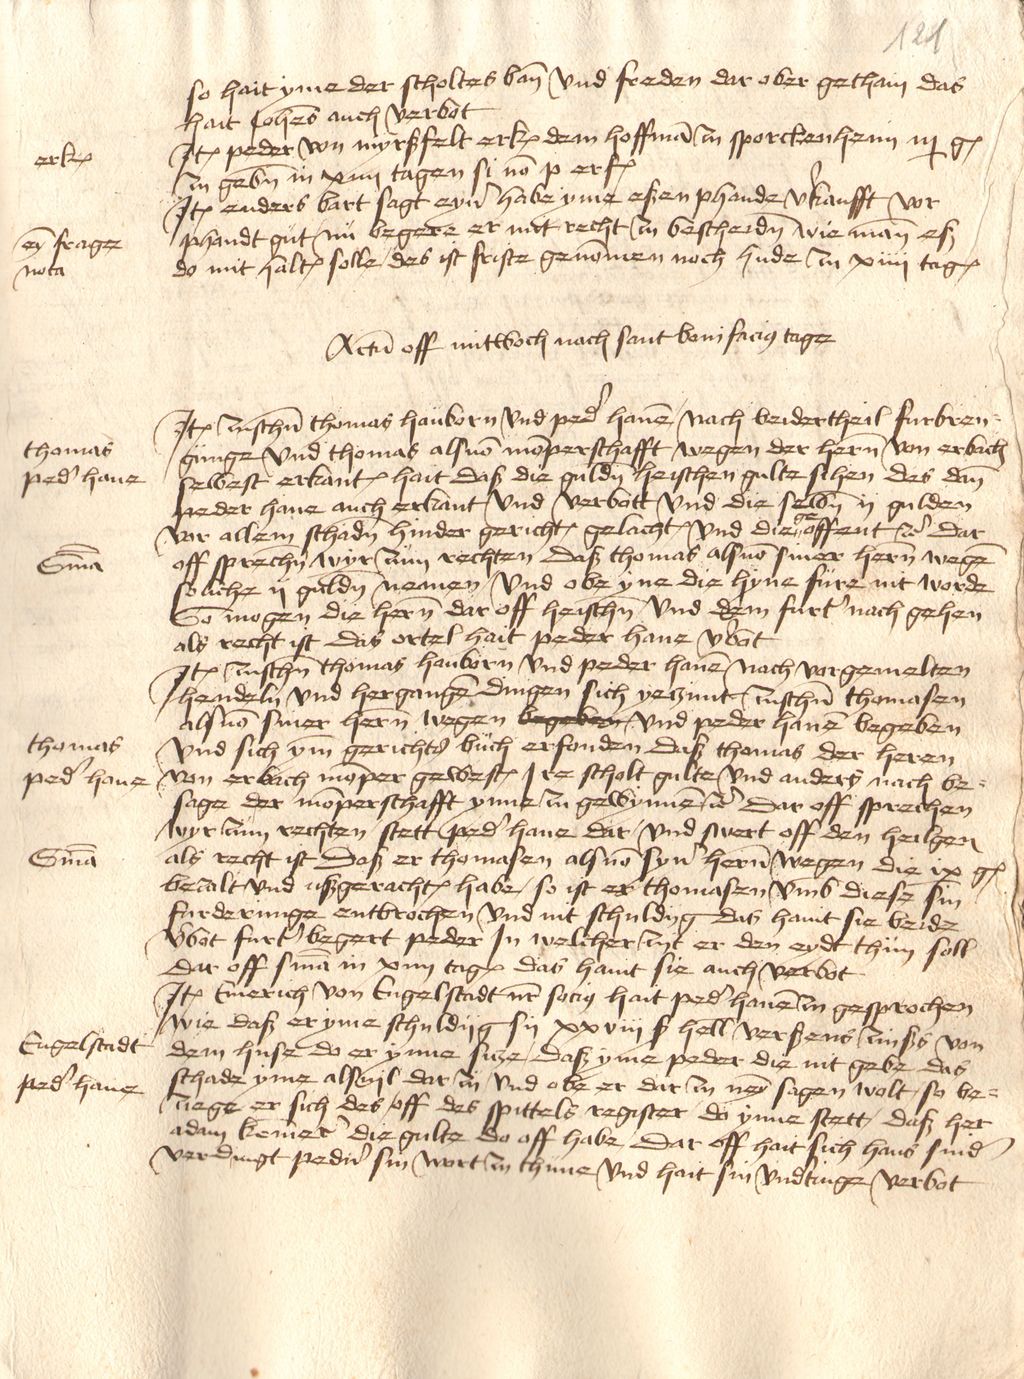 121
so hait yme der scholtes ban und freden dar ober gethain das
hait Johes auch verbot
erk
Jt peder von myrßfelt erk dem hoffman in sporckenheim
in geben in xiiij tagen si no p erf
Jt enders bart sagt eyn habe yme eßen phande verkaufft vor
ey frage
phandt gut nu begere er mit recht zu bescheidn wie man eß
nota
do mit halt solle des ist friste genomen noch hude zu xiiii tag
Actu off mitwoch nach sant bonifacius tage
Jt zuschn thomas hauborn und ped hane nach beidertheil furbren-
thomas
gunge und thomas alsuo monperschafft wegen der hern von erbach
ped hane
sewest erkant hait daß die guldn heischen gulte sihen des dan
peder hane auch erkant und verbott und die selbn ij gulden
vor allem schadn hinder gericht gelacht und die geoffent Dar
Sma
off sprechn wyr zum rechten Daß thomas alsuo siner hern wegen
soliche ij guldn nemen und obe yne die hyne fure nit worde
So mogen die hern dar off heischn und dem furt nach gehen
als recht ist das ortel hait peder hane vbot
Jt zuschn thomas hauborn und peder hane nach vorgemelten
hendeln und hergangen dingen sich yezunt zuschn thomasen
alsuo siner hern wegen begeben und peder hane begeben
thomas
und sich ym gerichts buch erfonden Daß thomas der heren
ped hane
von erbach monper gewest Ire scholt gulte und anders nach be-
sage der monperschafft yme zu gewynnen Dar off sprechen
wyr zum rechten stett ped hane dar und swert off den heilgen
Sma
als recht ist Daß er thomasen alsuo syn hern wegen die ix g
bezalt und ußgeracht habe so ist er thomasen umb diese sin
furderunge entbrochen und nit schuldyg das hant sie beide
vbot furt begert peder In welicher zyt er den eydt thun soll
Dar off sma in xiiij tag das hant sie auch verbot
Jt Emerich von Engelstadt socius hait ped hane zu gesprochen
wie daß er yme schuldig sy xxviij ß hell verseßens zinß von
Engelstadt
dem huse do er ynne sitze Daß yme peder die nit gebe das
ped hane
schade yme alsvil dar zu und obe er dar zu neyn sagen wolt so be-
zuege er sich des off des spittels register do ynne stett daß her
adam die gulte do off habe Dar off hait sich hans sin
verdingt pedn sin wort zu thune und hait sin underdinge verbot